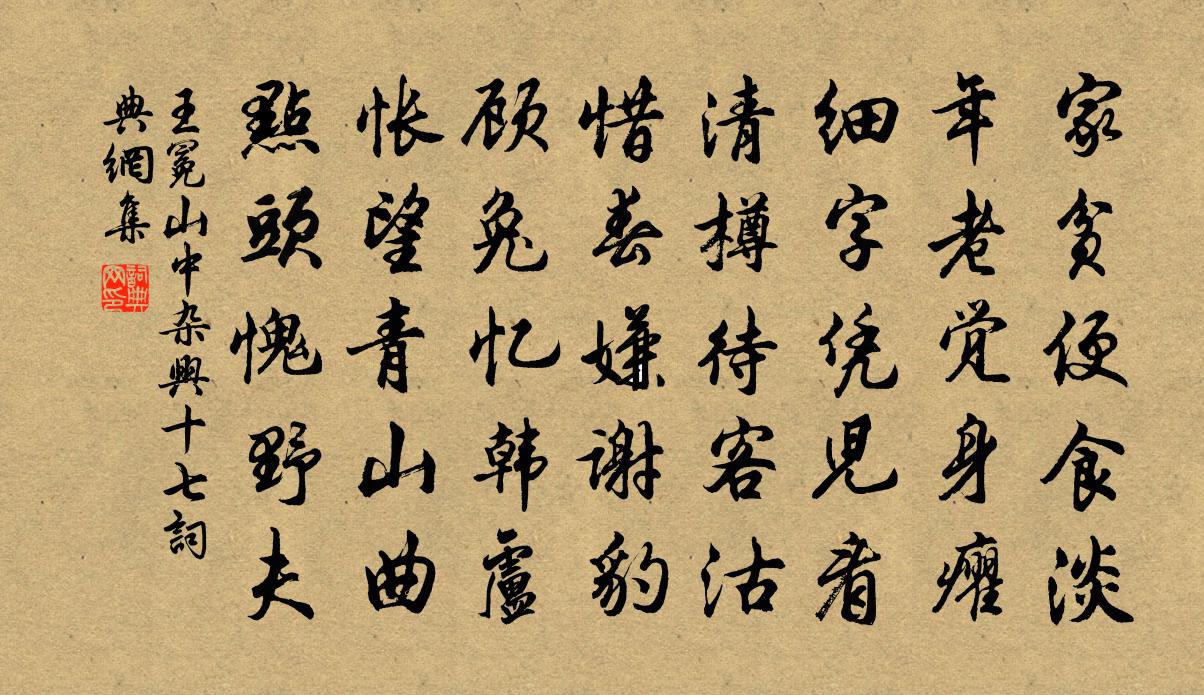 家贫便食淡
年老觉身癯
细字凭児看
清樽待客沽
惜春嫌谢豹
顾兔忆韩盧
怅望青山曲
點頭愧野夫
王冕山中杂興十七詞
典網集
詞典
网印